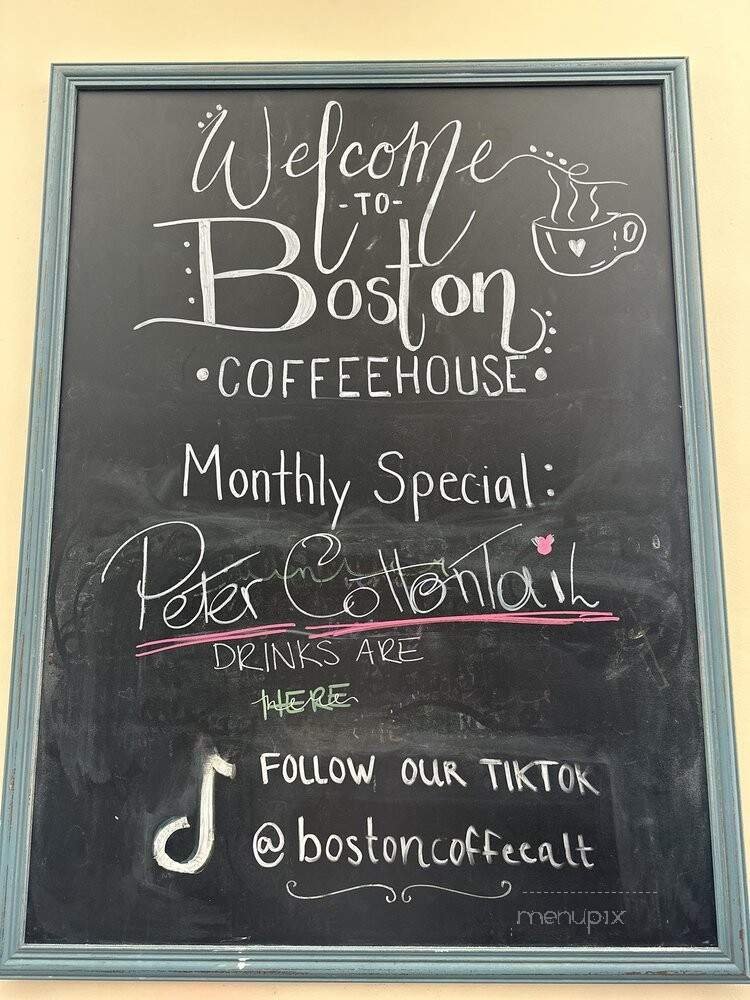 Welcome
-TO-
Boston
•COFFEEHOUSE•
Monthly Special:
Peter Cottontail
DRINKS ARE
HERE
FOLLOW OUR TIKTOK
@bostoncoffeealt
menupix